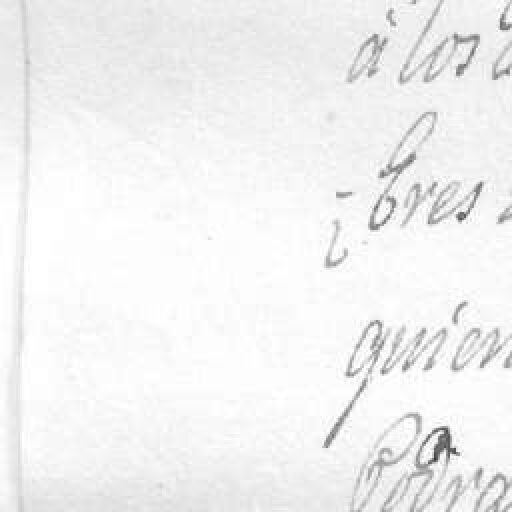 á los
¿Eres
quien
Podra